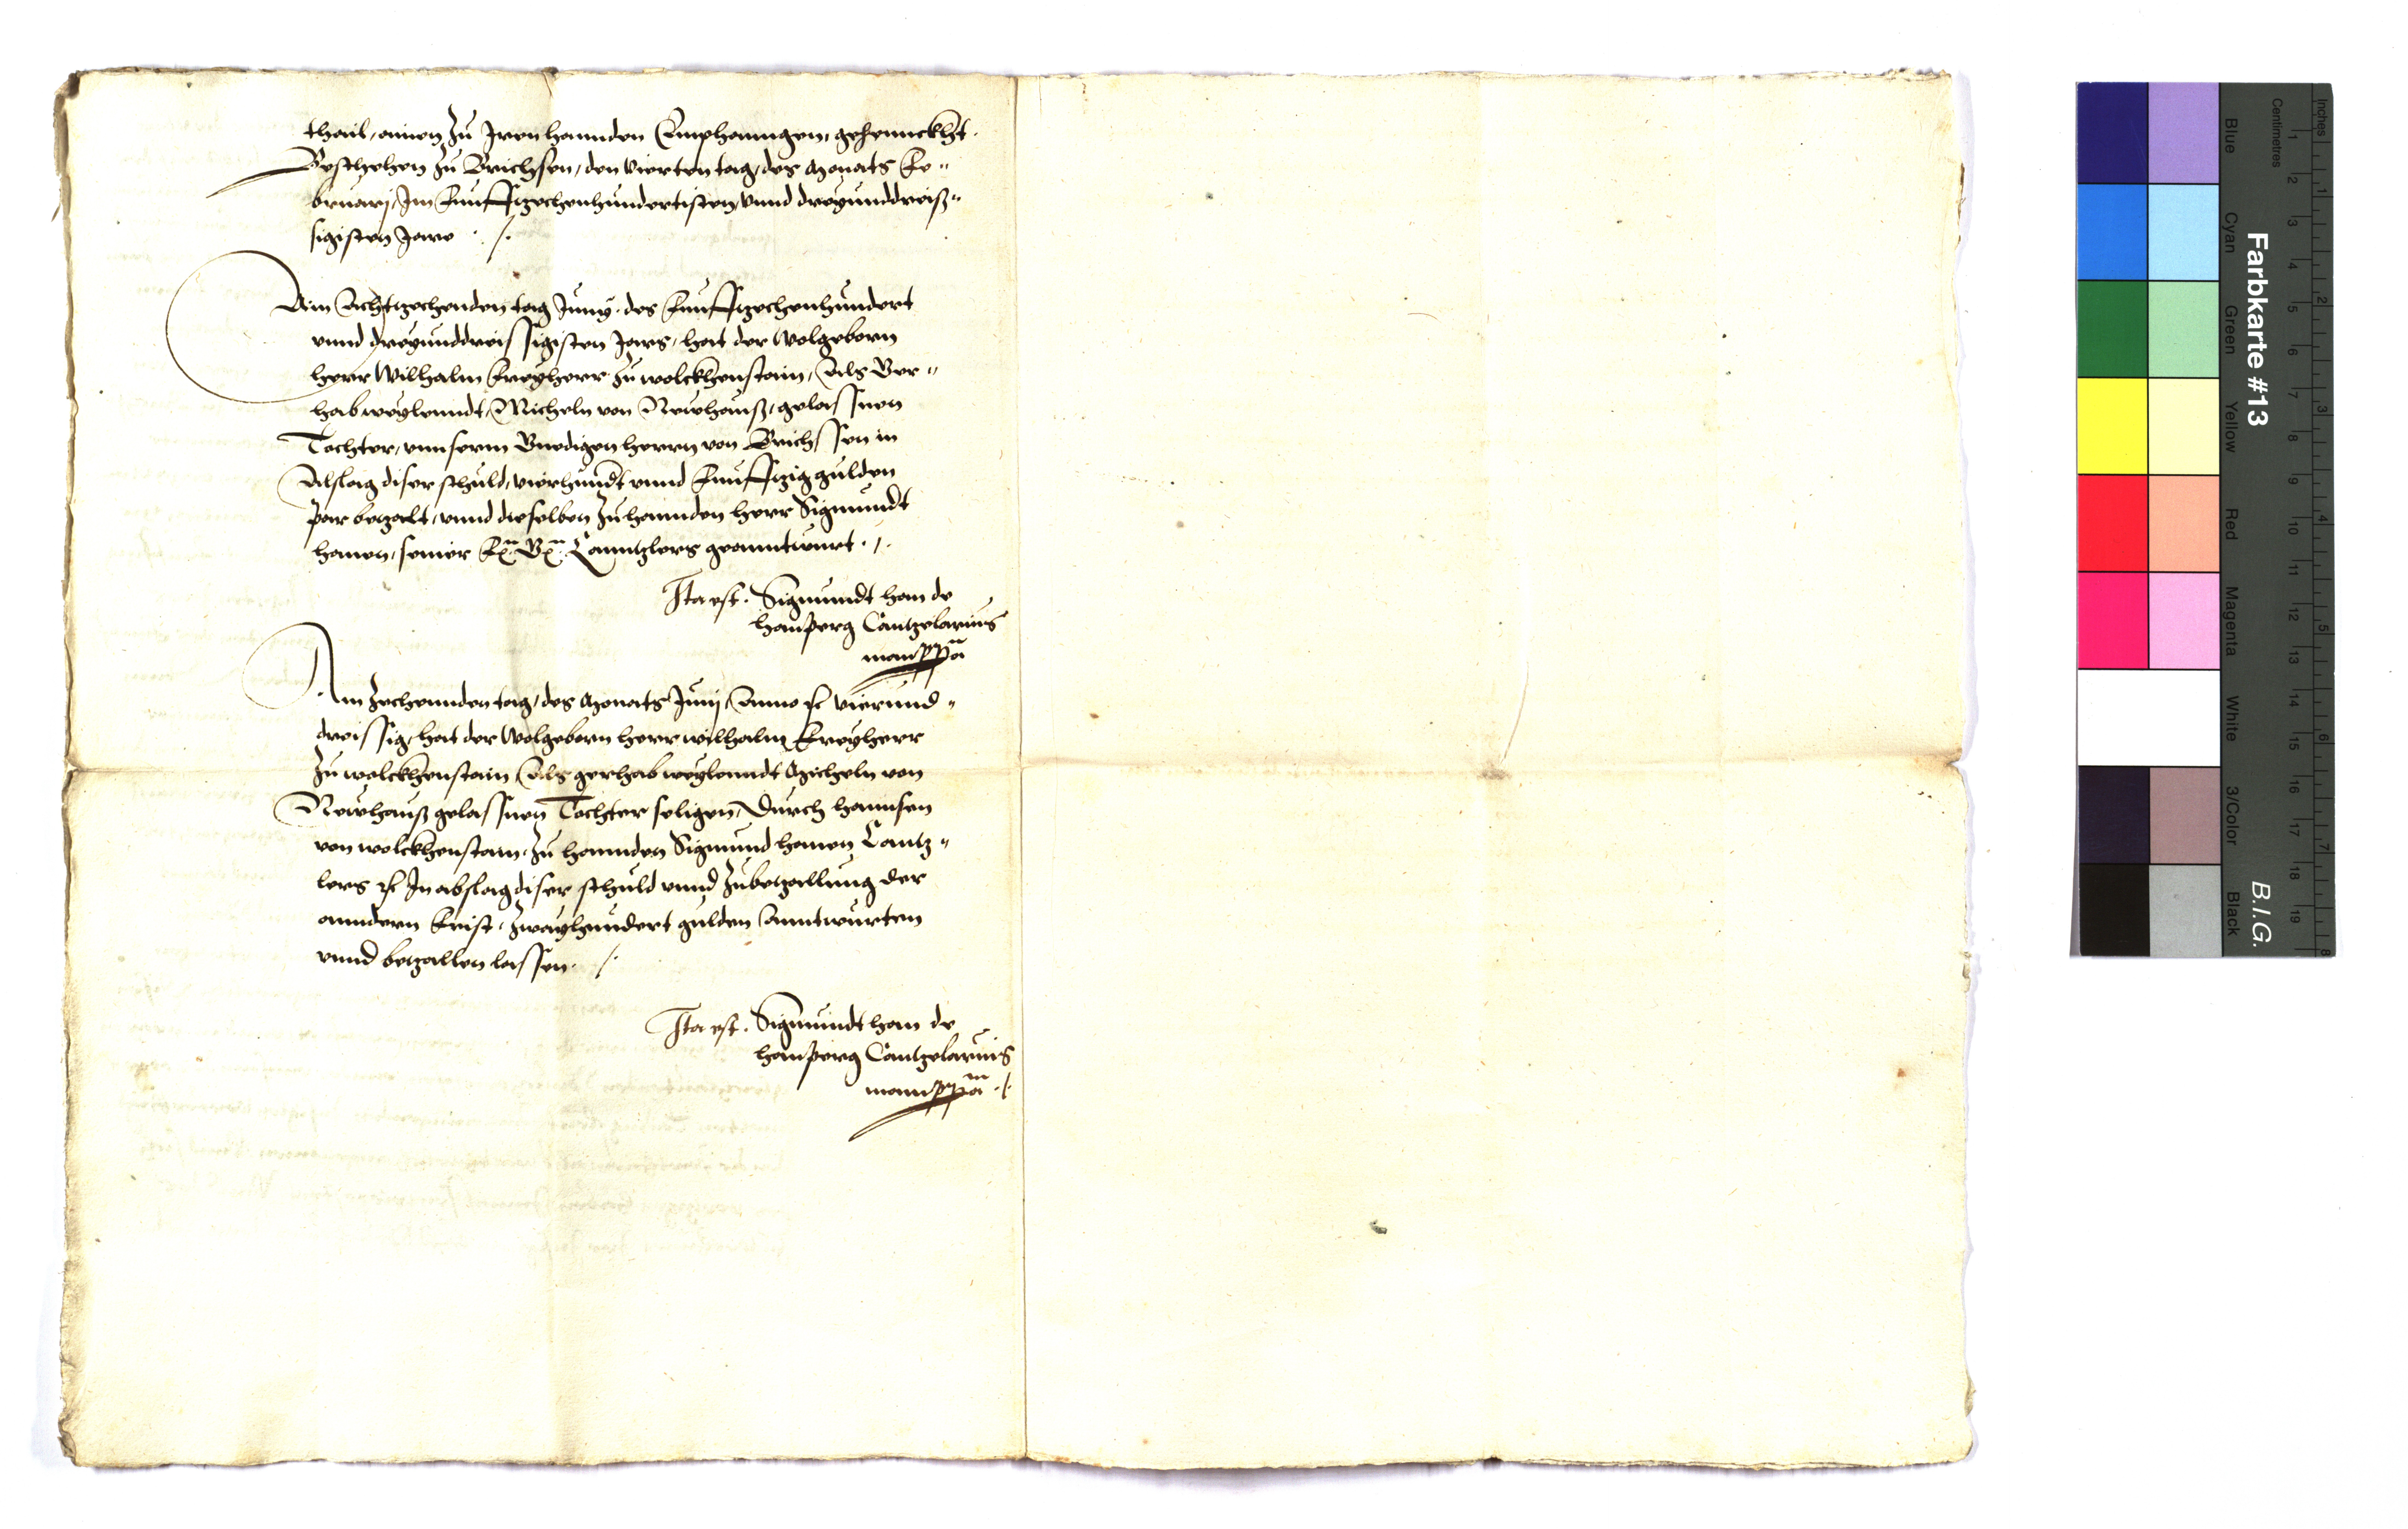 thail, ainen zu Iren hannden Emphanngen, gehennckht.
Beschehen zu Brichsen, den vierten tag, des Monats Fe„
bruarij, Im Funfftzechenhundertisten, vnnd dreyunddreiß„
sigisten Jare ./.
Am Achtzechenden tag Juny, des Funfftzechenhundert
vnnd dreyunddreissigisten Jars, hat der Wolgeborn
herr Wilhalm Freyherr zu wolckhenstain, Als Ger„
hab weylenndt, Micheln von Newhauß, gelassnen
Tochter, vnnserm Gnedigen herrn von Brichssen in
Abslag diser schuld, vierhundt vnnd Funfftzig gulden
par betzalt, vnnd dieselben zu hannden herr Sigmundt
hanen, seiner F. G. Canntzlers geanntwurt ./.
Ita est. Sigmundt han de
hanperg Cantzelarius
manu ppa
Am zechennden tag, des Monats Junij, Anno rc vierund„
dreissig, hat der Wolgeborn herr wilhalm Freyherr
zu wolckhenstain, Als gerhab weylenndt Micheln von
Newhauß gelassnen Tochter seligen, Durch hannsen
von wolckhenstain, zu hannden Sigmund hanen Cantz„
lers rc In abslag diser schuld vnnd zubetzallung der
anndern Frist, zwayhundert gulden Anntwurten
vnnd betzallen lassen. /.
Ita est. Sigmundt han de
hanperg Cantzelarius
manu ppa ./.
Inches
Centimetres
Farbkarte #13
B.I.G.
Blue
Cyan
Green
Yellow
Red
Magenta
White
3/Color
Black
1 2 3 4 5 6 7 8 9 10 11 12 13 14 15 16 17 18 19
1 2 3 4 5 6 7 8